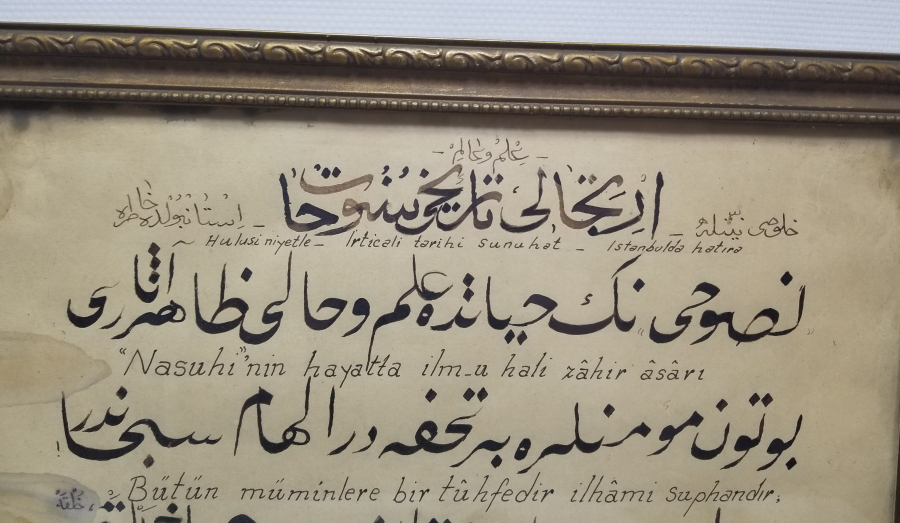 علم و عالم
خلوصی نیتله - ارتجالی تاریخی سنوحات - استانبولده خاطره
Hulusi niyetle - İrticali tarihi sunuhat - İstanbulda hatıra
نصوحی نك حیاتده علم و حالی ظاهر آثاری
"Nasuhi"nin hayatta ilm-u hali zâhir âsârı
بوتون مومنلره بر تحفه در الهام سبحاندر
Bütün müminlere bir tûhfedir ilhâmi suphandır;